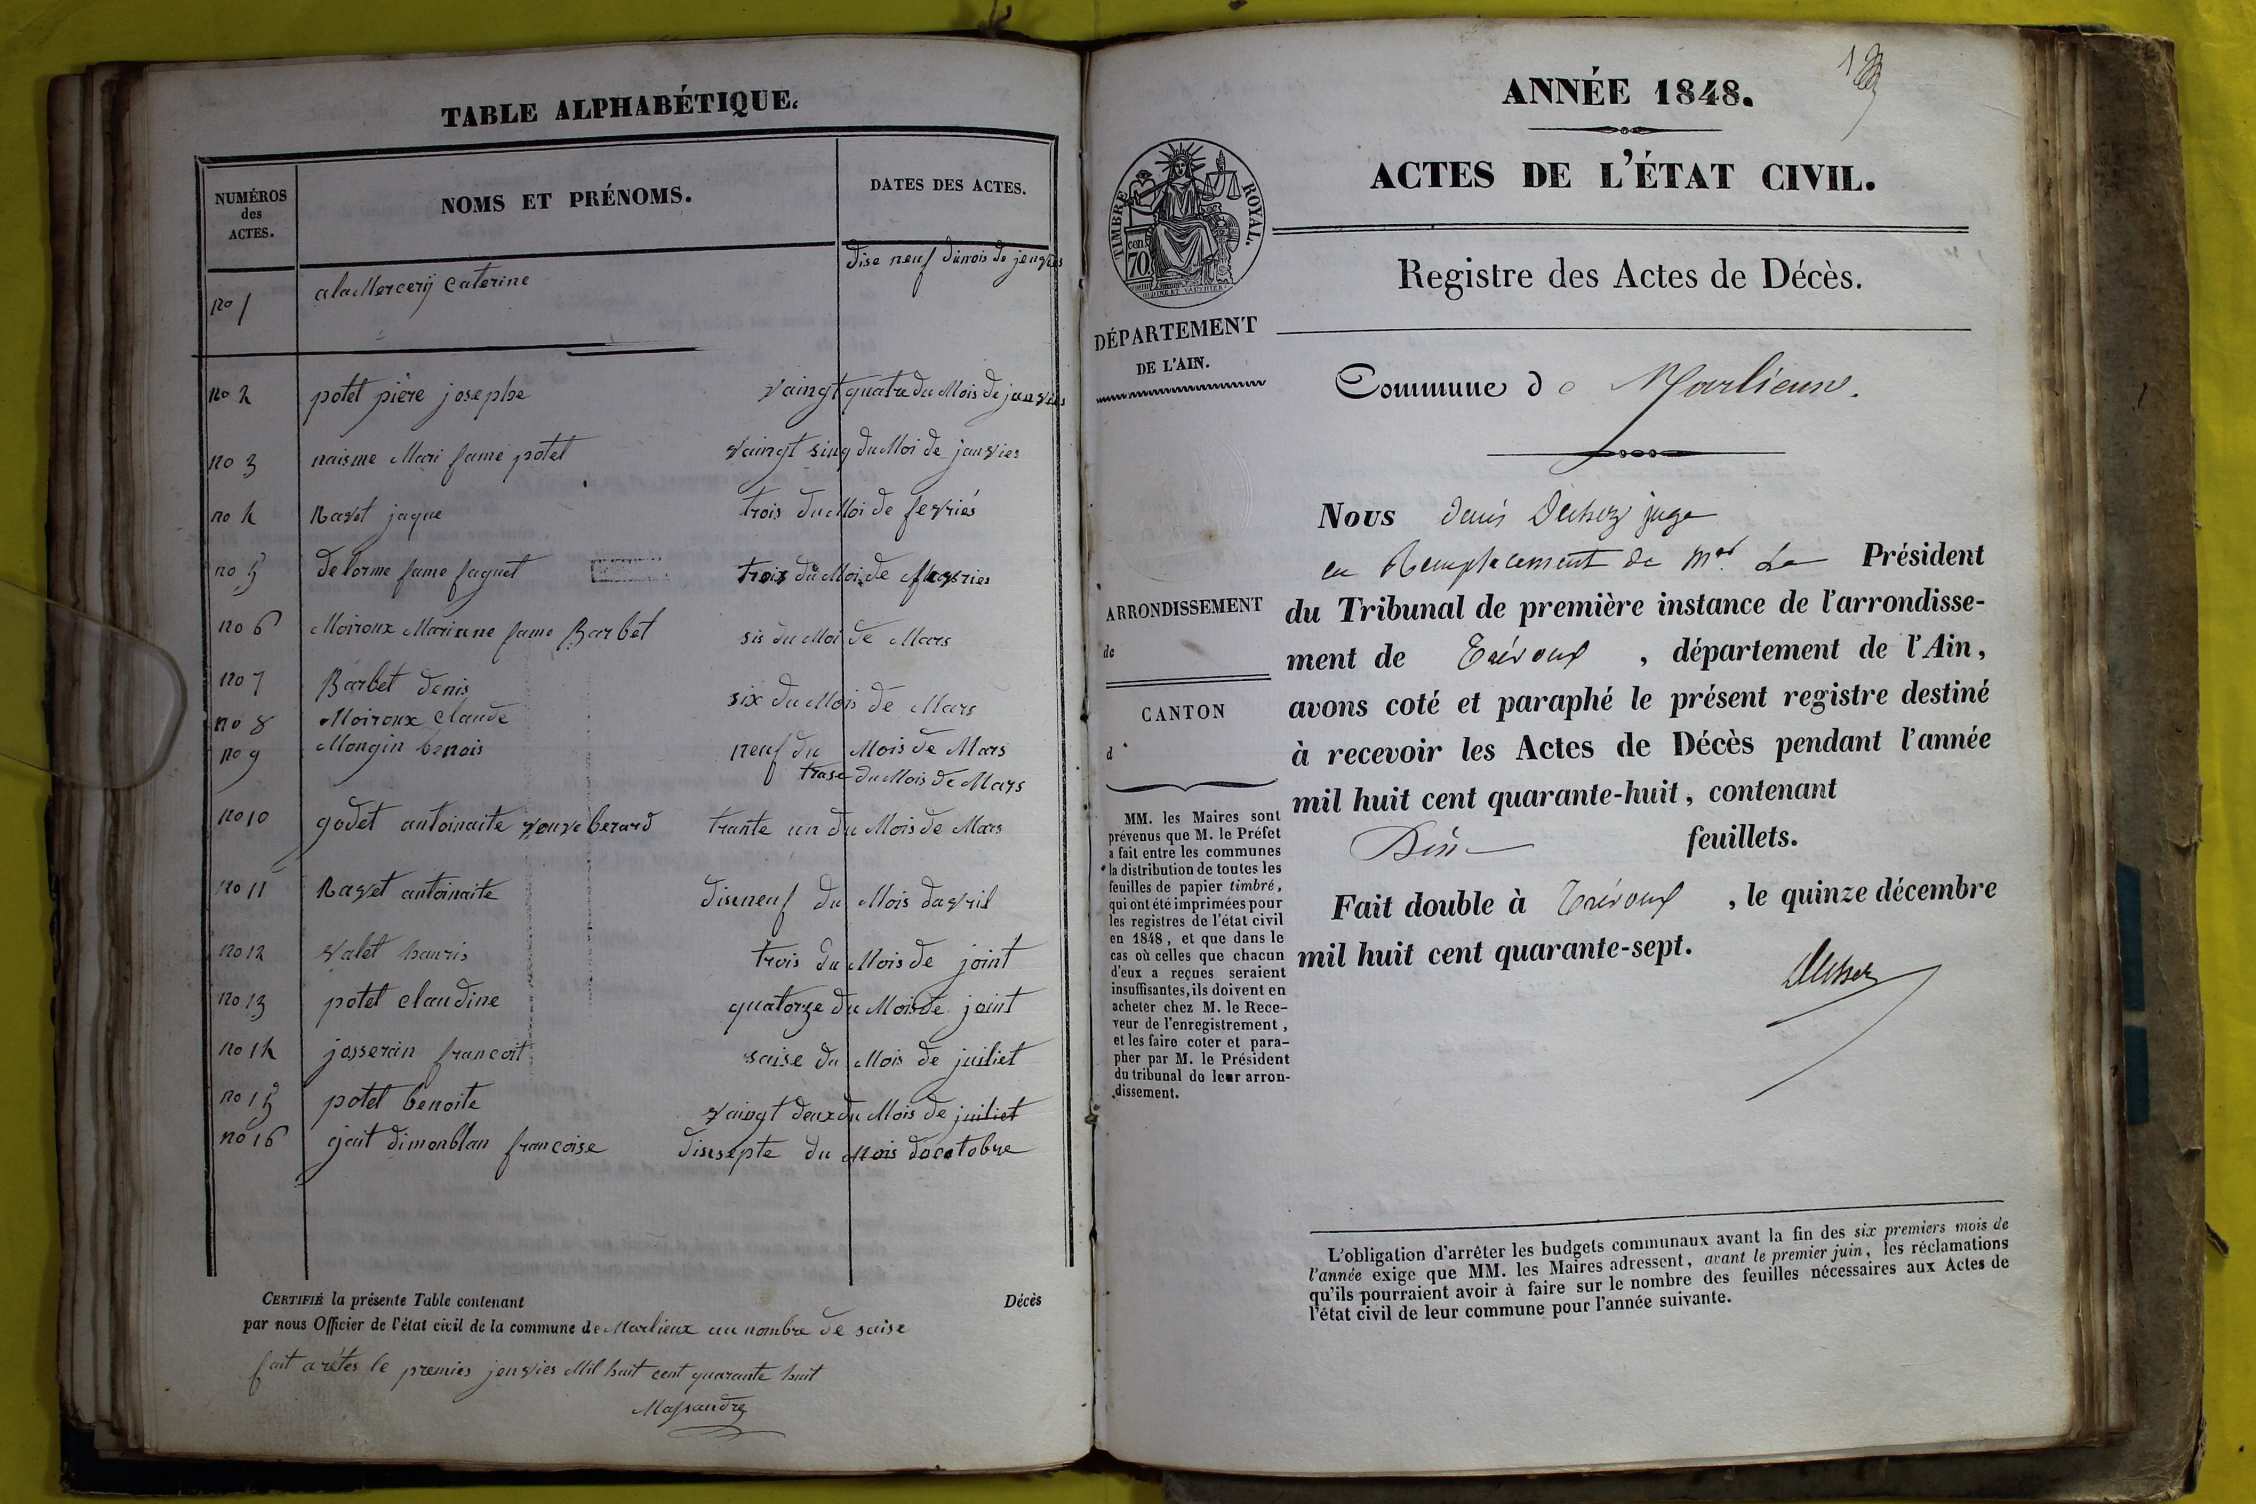 TABLE ALPHABÉTIQUE.
NUMÉROS
des
ACTES.
NOMS ET PRÉNOMS.
DATES DES ACTES.
no 1 alaMercerij Caterine dise neuf dumois de jenvies
no 2 potet pière josephe vaingt quatre du Mois de janvies
no 3 naisme Mari fame potet vaingt sinq du Moi de janvies
no 4 Ravet jaque trois du Moi de fevriés
no 5 delorme fame faguet trois du Moi de fevries
no 6 Moiroux Marianne fame Barbet sis du Moi de Mars
no 7 Barbet denis six du Mois de Mars
no 8 Moiroux Claude neuf du Mois de Mars
no 9 Mongin benois trase du Mois de Mars
no 10 godet antoinaite veuve berard trante un du Mois de Mars
no 11 Ravet antoinaite diseneuf du Mois davril
no 12 valet hauris trois du Mois de joint
no 13 potet claudine quatorze du Mois de joint
no 14 josserain francoit saise du Mois de juiliet
no 15 potet benoite vaingt deux du Mois de juiliet
no 16 gait dimonblan francoise disesepte du Mois docotobre
CERTIFIÉ la présente Table contenant Décès
par nous Officier de l'état civil de la commune de Marlieux au nombre de saise
fait arétes le premies jenvies Mil huit cent quarante huit
Massandre
ANNÉE 1848.
ACTES DE L'ÉTAT CIVIL.
TIMBRE ROYAL.
cen.
70
Registre des Actes de Décès.
DÉPARTEMENT
DE L'AIN.
Commune de Marlieux.
Nous denis Duhez juge
en Remplacement de Mr. Le Président
du Tribunal de première instance de l'arrondisse-
ment de Trévoux , département de l'Ain,
avons coté et paraphé le présent registre destiné
à recevoir les Actes de Décès pendant l'année
mil huit cent quarante-huit, contenant
Dix feuillets.
Fait double à Trévoux , le quinze décembre
mil huit cent quarante-sept.
ARRONDISSEMENT
de
CANTON
d
MM. les Maires sont
prévenus que M. le Préfet
a fait entre les communes
la distribution de toutes les
feuilles de papier timbré,
qui ont été imprimées pour
les registres de l'état civil
en 1848, et que dans le
cas où celles que chacun
d'eux a reçues seraient
insuffisantes, ils doivent en
acheter chez M. le Rece-
veur de l'enregistrement,
et les faire coter et para-
pher par M. le Président
du tribunal de leur arron-
dissement.
L'obligation d'arrêter les budgets communaux avant la fin des six premiers mois de
l'année exige que MM. les Maires adressent, avant le premier juin, les réclamations
qu'ils pourraient avoir à faire sur le nombre des feuilles nécessaires aux Actes de
l'état civil de leur commune pour l'année suivante.